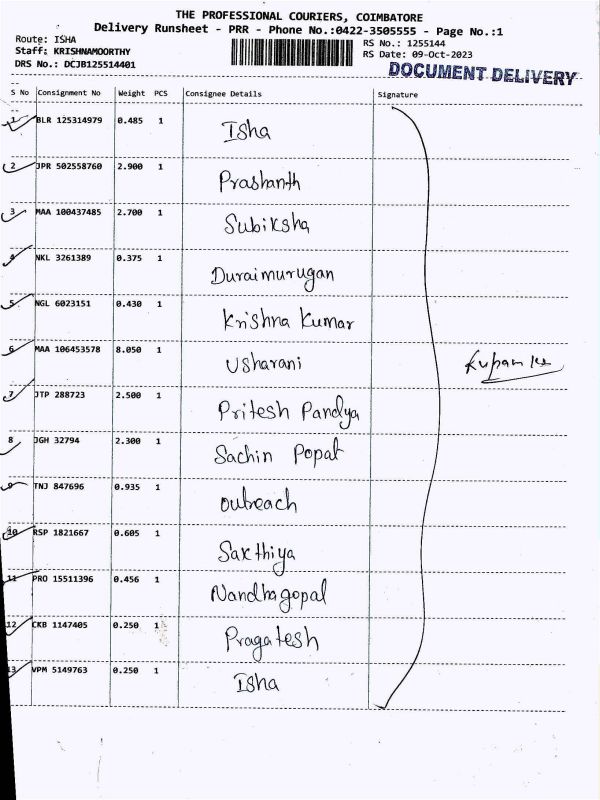 THE PROFESSIONAL COURIERS, COIMBATORE
Delivery Runsheet - PRR - Phone No.:0422-3505555 - Page No.:1
Route: ISHA
RS No.: 1255144
Staff: KRISHNAMOORTHY
RS Date: 09-Oct-2023
DRS No.: DCJB125514401
DOCUMENT DELIVERY
S No Consignment No Weight PCS Consignee Details Signature
1 BLR 125314979 0.485 1 Isha
2 JPR 502558760 2.900 1 Prashanth
3 MAA 100437485 2.700 1 Subiksha
4 NKL 3261389 0.375 1 Duraimurugan
5 NGL 6023151 0.430 1 Krishna Kumar
6 MAA 106453578 8.050 1 Usharani
7 JTP 288723 2.500 1 Pritesh Pandya
8 JGH 32794 2.300 1 Sachin Popat
9 TNJ 847696 0.935 1 Outreach
10 RSP 1821667 0.605 1 Sakthiya
11 PRO 15511396 0.456 1 Nandhagopal
12 CKB 1147405 0.250 1 Pragatesh
13 VPM 5149763 0.250 1 Isha